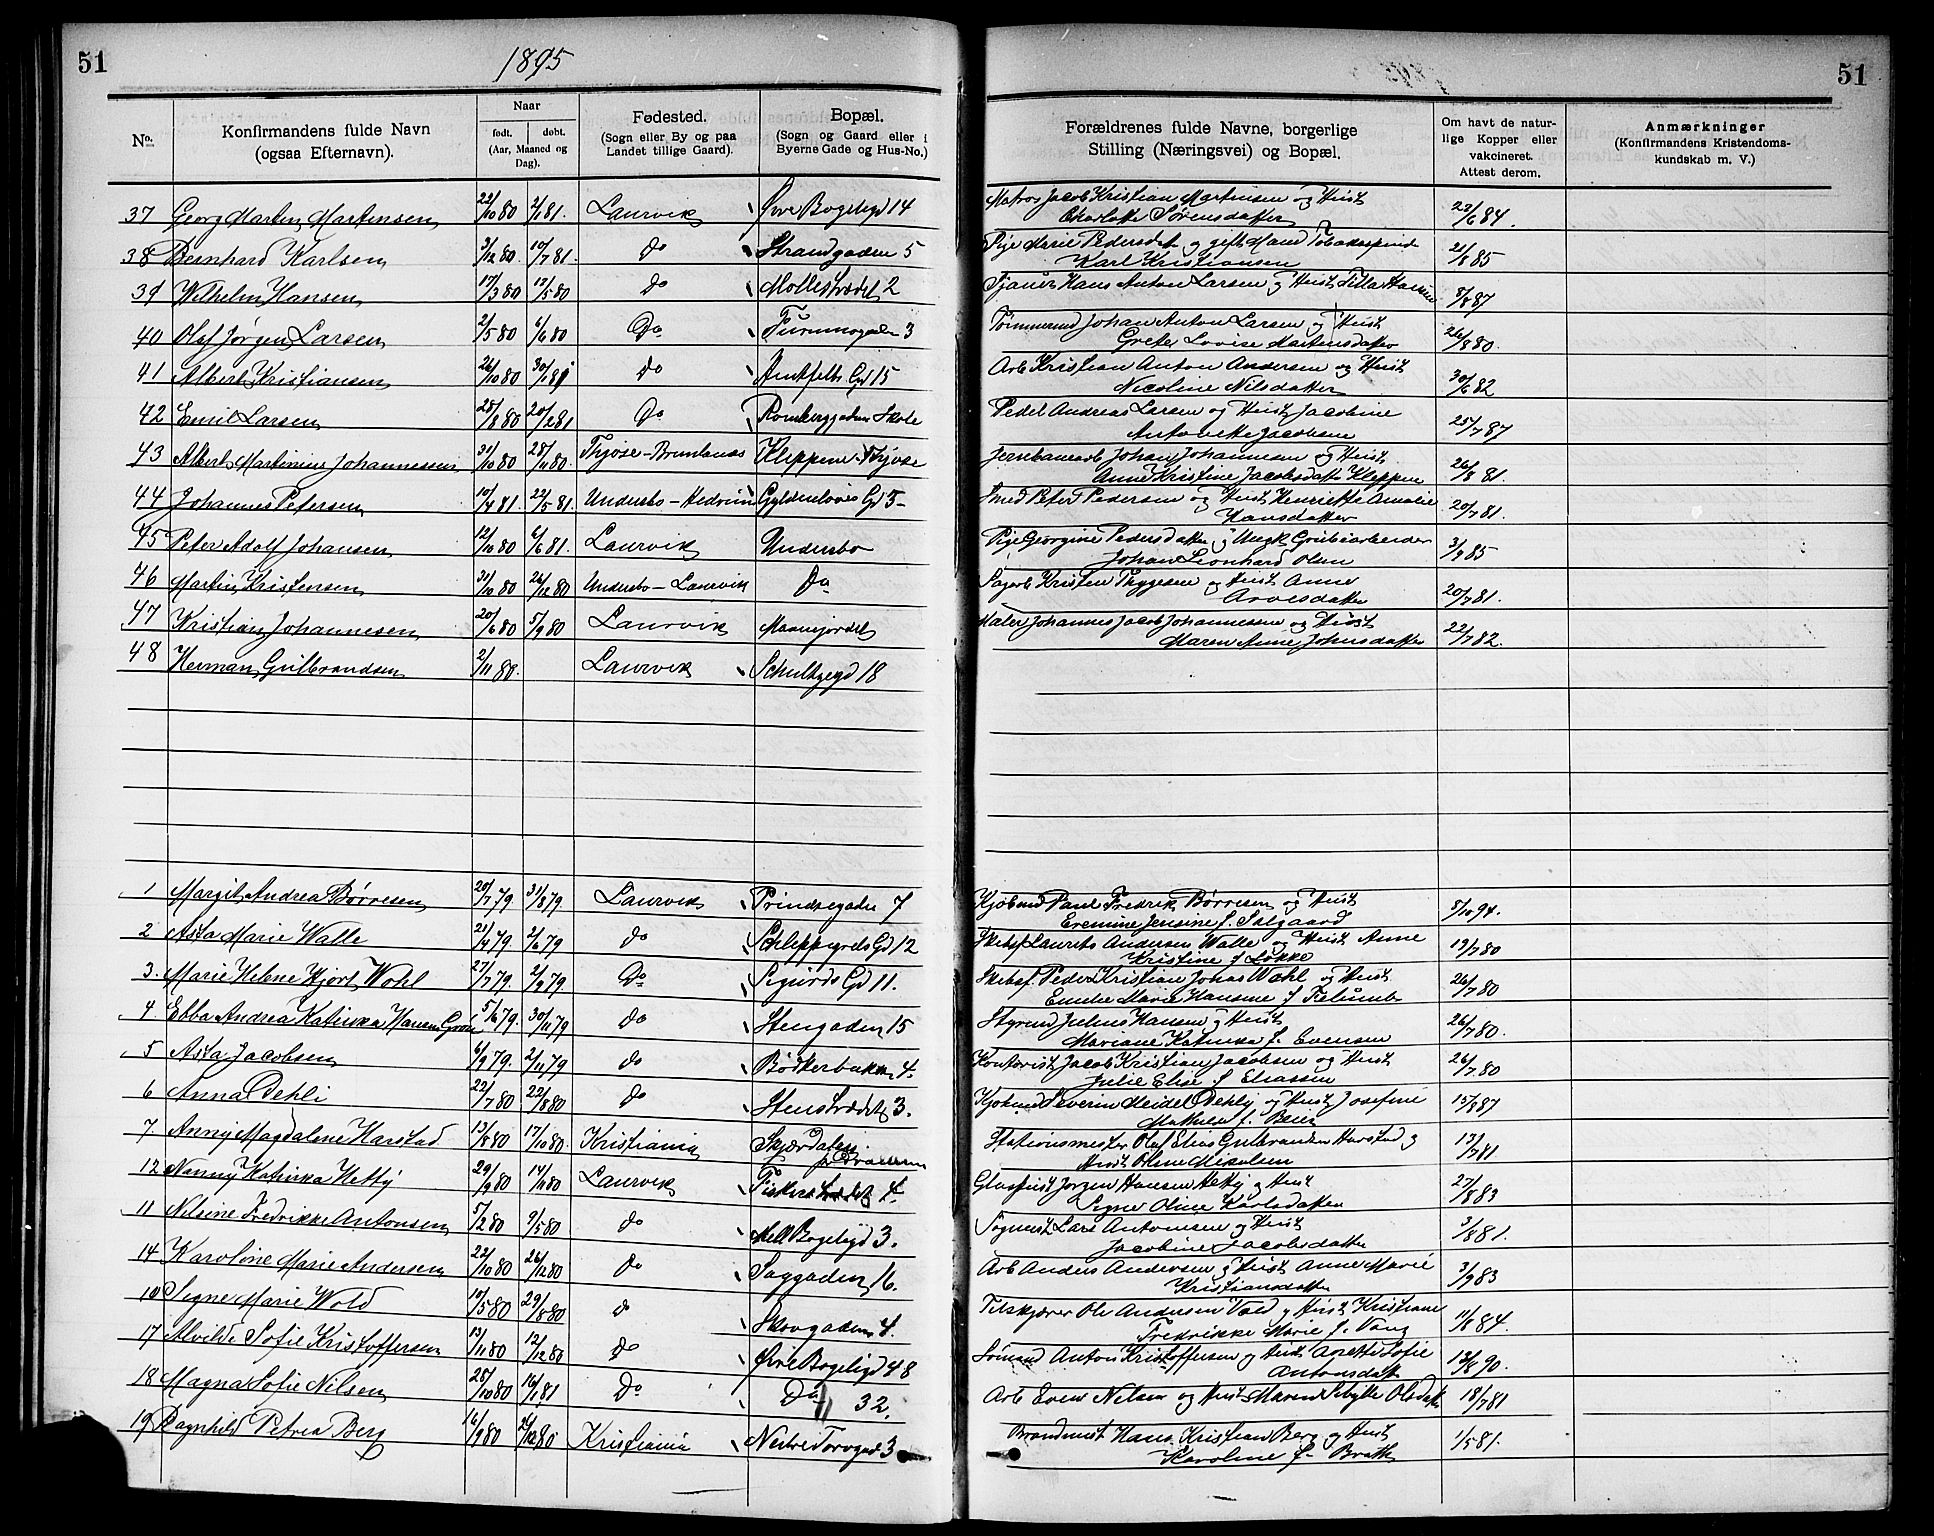 51
1895
51
No. Konfirmandens fulde Navn (ogsaa Efternavn). Naar født. døbt. (Aar, Maaned og Dag). Fødested. (Sogn eller By og paa Landet tillige Gaard). Bopæl. (Sogn og Gaard eller i Byerne Gade og Hus-No.) Forældrenes fulde Navne, borgerlige Stilling (Næringsvei) og Bopæl. Om havt de naturlige Kopper eller vakcineret. Attest derom. Anmærkninger (Konfirmandens Kristendomskundskab m. V.)
37 Georg Martin Martinsen 22/10 80 2/1 81. Laurvik Øvre Bøgeligd 14 Matros Jacob Kristian Martinsen og Hust
Charlotte Sørensdatter 23/6 84.
38 Bernhard Karlsen 3/12 80. 10/7 81. do Strandgaden 5 Pige Marie Pedersdat og gift Mand Tobakspind
Karl Kristiansen 21/8 85
39 Wilhelm Hansen 17/3 80 17/5 80 do Mollestrædet 2 Hans Anton Larsen og Hust 8/8 87
40 Olaf Jørgen Larsen 2/5 80 6/6 80 Do 3 Tømmermd Johan Anton Larsen og Hust
Grete Lovise Martinsdatter 26/8 80.
41 Albert Kristiansen 26/10 80 30/1 81 do Ahlefelts Gd 15 Arb Kristian Anton Andersen og Hust
Nicoline Nilsdatter 30/6 82
42 Emil Larsen 28/8 80 20/2 81 Do Rombergaden Skole Pedel Andreas Larsen og Hust Jacobine
Antonette Jacobsen 25/7 87
43 Albert Martinius Johannessen 31/10 80 28/11 80. Thjøse-Brunlanæs Kleppene Thjose Jernbanearb Johan Johannesen og Hust
Anne Kristine Jacobsdatter Kleppene 26/8 81.
44 Johannes Petersen 10/4 81. 22/5 81. Undersbo-Hedrum Gyldenløves Gd 5 Smed Peter Pedersen og Hust Henriette Amalie
Hansdatter 20/7 81.
45 Peter Adolf Johansen 12/10 80 6/6 81. Laurvik Undersbo Pige Georgine Pedersdatter og Ungk Grubearbeider
Johan Leonhard Olsen 3/9 85
46 Martin Kristensen 31/10 80 26/12 80 Undersbo-Laurvik Do Sagarb Kristen Thygesen og Hust Anne
Arvesdatter 20/7 81.
47 Kristian Johannesen 20/6 80 5/9 80 Laurvik Maanejordet Maler Johannes Jacob Johannessen og Hust
Maren Anne Johnsdatter 22/7 82.
48 Herman Gulbrandsen 2/11 80. Laurvik Schultzegd 18
1 Margit Andrea Børresen 20/7 79 31/8 79. Laurvik Prindsegaden 7 Kjøbmd Paul Fredrik Børresen og Hust
Eremine Jensine f. Salgaard 8/10 94.
2 Asta Marie Walle 21/4 79 2/6 79 do Schleppegrels Gd 12 Skibsf Laurits Andersen Walle og Hust Anne
Kristine f Løkke 19/7 80
3. Marie Helene Hjort Wohl 27/7 79. 2/9 79. Do Sigurds Gd 11. Skibsf. Peder Kristian Jonas Wohl og Hust
Emilie Marie Hansine f 26/7 80
4. Ebba Andrea Katinka Hansen 5/6 79. 30/11 79 do Stengaden 15 Styrmd Julius Hansen og Hust
Mariane Katinka f. Evensen 26/7 80.
5 Asta Jacobsen 6/9 79. 2/11 79 do Bødkerbakken 4. Kontorist Jacob Kristian Jacobsen og Hust
Julie Elise f Eliassen 26/7 80
6 Anna Dehli 22/7 80 22/8 80 do Stenstrædet 3. Kjøbmd Severin Meidel Dehly og Hust Josefine
Mathilde f. Beier 15/8 87
7 Anny Magdalene Harstad 13/8 80 17/10 80. Kristiania Skjærdalen
pr Drammen Stationsmester Olaf Elias Gulbrandsen Harstad og
Hust Oline Mikelsen 13/7 81
12 Nanny Katinka Hetty 29/9 80 14/11 80 Laurvik Fiskerstrædet 4. Glaspust Jørgen Hansen Hetty og Hust
Signe Oline Karlsdatter 27/8 83
11 Nilsine Fredrikke Antonsen 5/2 80 9/5 80 do Mell Bøgeligd 3. Lars Antonsen og Hust
Jacobine Jacobsdatter 3/8 81.
14 Karoline Marie Andersen 22/10 80 26/12 80 do Saggaden 16. Arb Anders Andersen og Hust Anne Marie
Kristiansdatter 3/9 83
10 Signe Marie Wold 10/5 80 29/8 80 do Skovgaden 4. Filskjærer Ole Andersen Vold og Hust Kristiane
Fredrikke Marie f. Vang 11/8 84.
17 Alvilde Sofie Kristoffersen 13/11 80 12/12 80 Do Øvre Bøgeligd 48 Sømand Anton Kristoffersen og Hust Anette Sofie
Antonsdat 13/8 90.
18 Magna Sofie Nilsen 28/10 80 16/1 81 Do Do 32. Arb Even Nilsen og Hust Maren Sibylle Olsdat 18/7 81
19 Ragnhild Petrea Berg 16/9 80 26/12 80 Kristiania Nedre Torvgad 3 Brandmest Hans Kristian Berg og Hust
Karoline f. Brath 1/5 81.